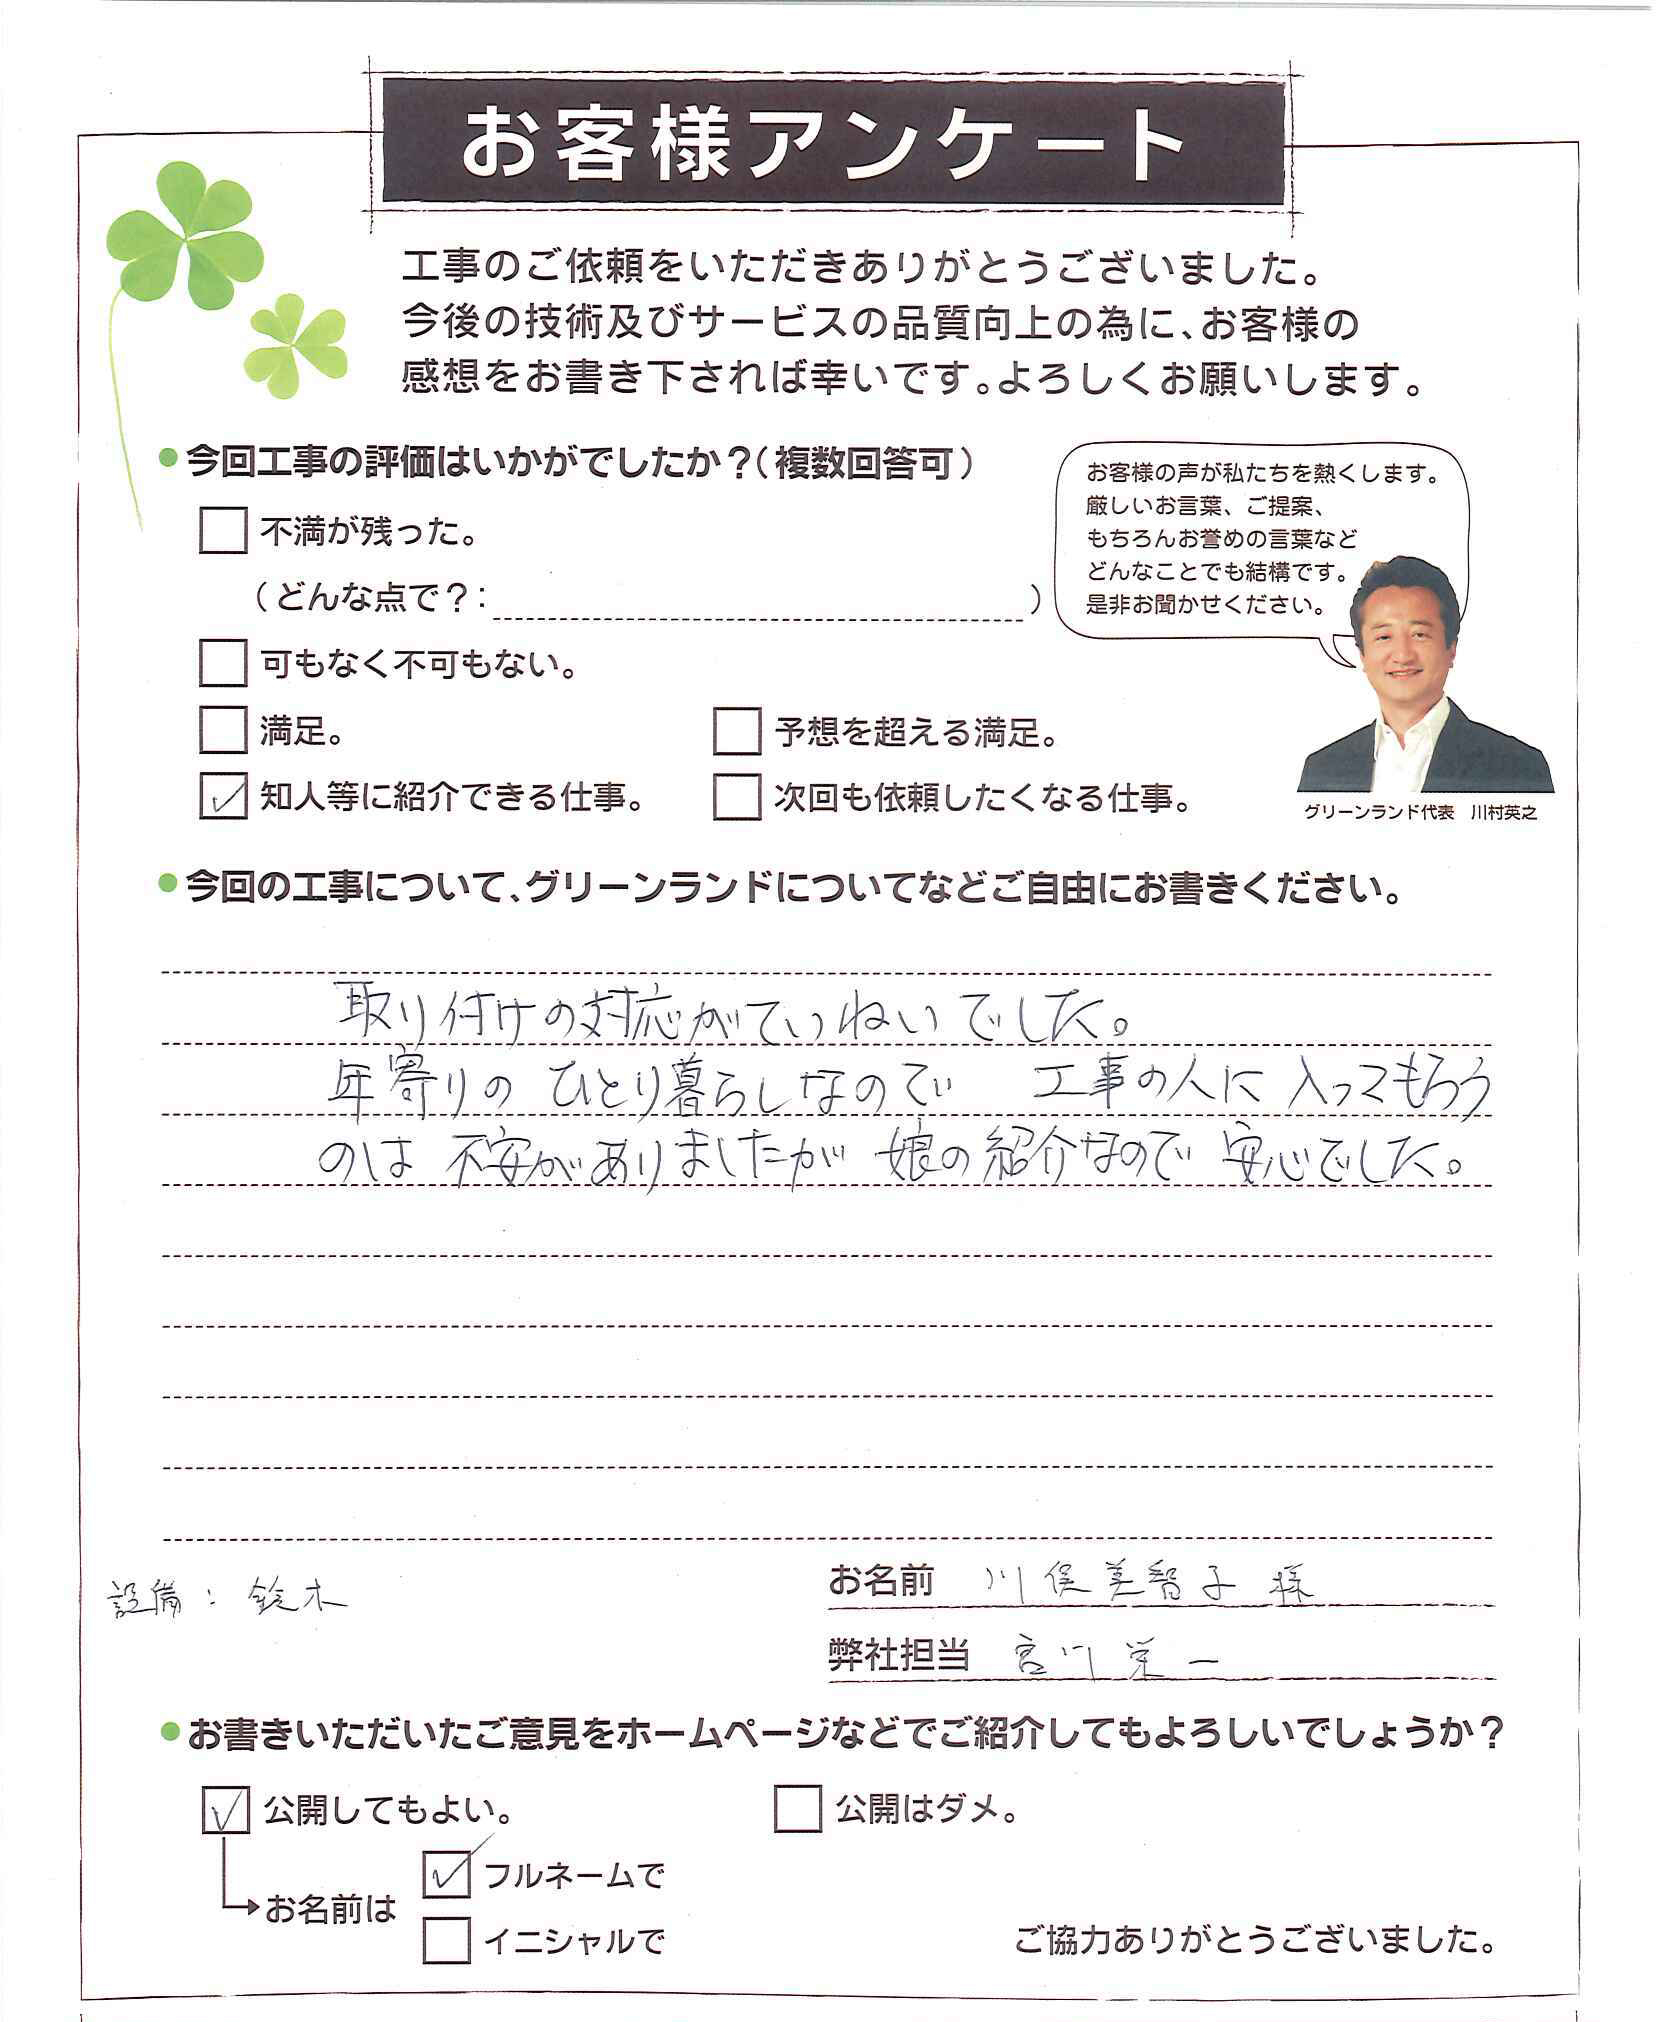 お客様アンケート
工事のご依頼をいただきありがとうございました。
今後の技術及びサービスの品質向上の為に、お客様の
感想をお書き下されば幸いです。よろしくお願いします。
●今回工事の評価はいかがでしたか？（複数回答可）
不満が残った。
（どんな点で？： ）
可もなく不可もない。
満足。
予想を超える満足。
知人等に紹介できる仕事。
次回も依頼したくなる仕事。
お客様の声が私たちを熱くします。
厳しいお言葉、ご提案、
もちろんお誉めの言葉など
どんなことでも結構です。
是非お聞かせください。
グリーンランド代表　川村英之
●今回の工事について、グリーンランドについてなどご自由にお書きください。
取り付けの対応がていねいでした。
年寄りの ひとり暮らしなので 工事の人に 入ってもらう
のは 不安がありましたが 娘の紹介なので 安心でした。
設備：鈴木
お名前 川俣美智子 様
弊社担当 宮川 栄一
●お書きいただいたご意見をホームページなどでご紹介してもよろしいでしょうか？
公開してもよい。
公開はダメ。
お名前は
フルネームで
イニシャルで
ご協力ありがとうございました。